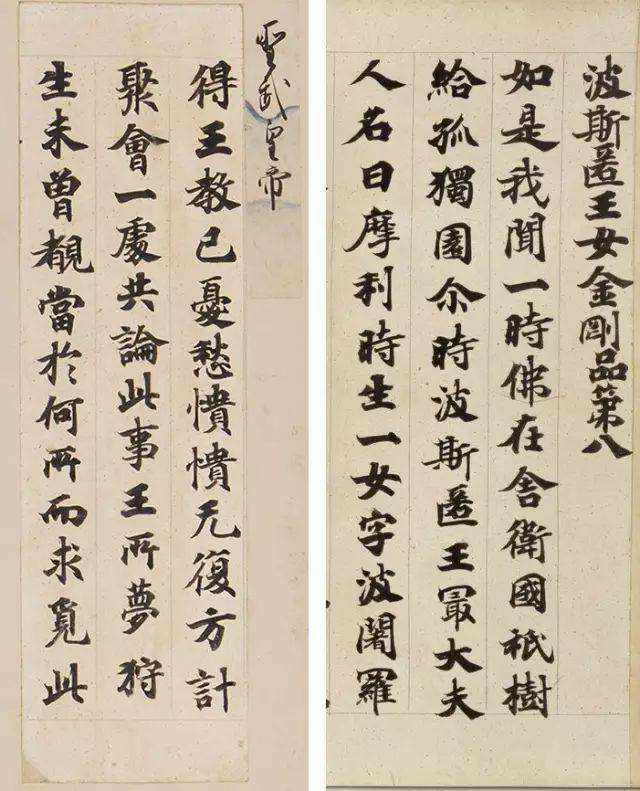 波斯匿王女金剛品第八
如是我聞一時佛在舍衛國祇樹
給孤獨園尒時波斯匿王冣大夫
人名曰摩利時生一女字波闍羅
聖武皇帝
得王教已憂愁憒憒无復方計
聚會一處共論此事王所夢狩
生未曾覩當於何所而求覓此